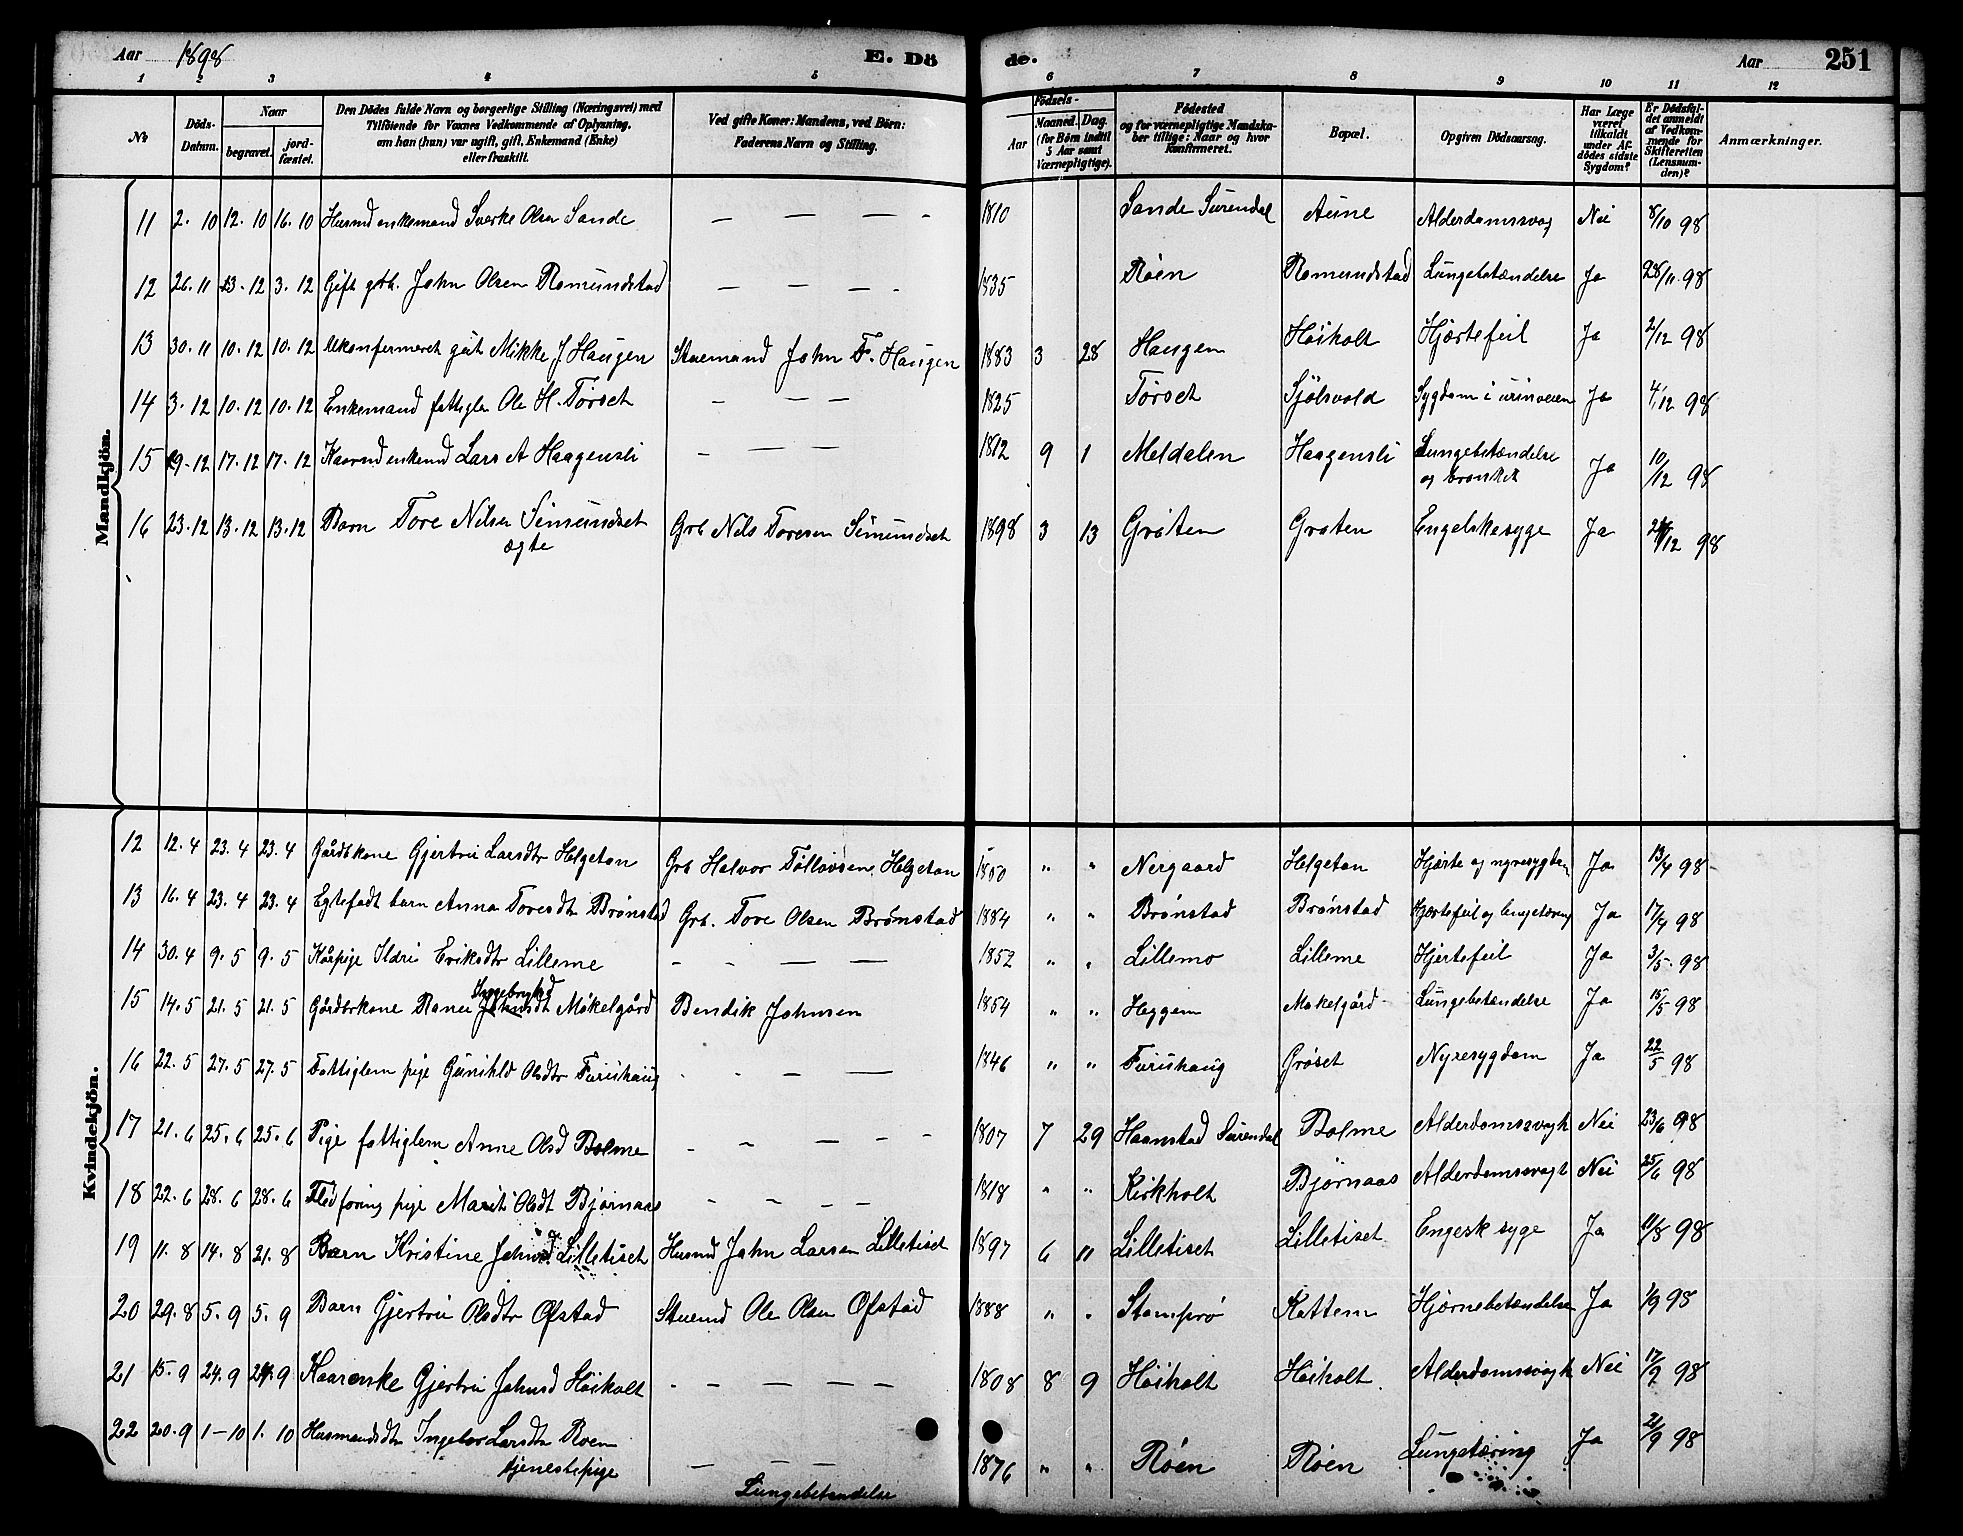 Aar 1898 E. Dö de. Aar 251
1 2 3 4 5 6 7 8 9 10 11 12
No
Döds-Datum.
Naar
begravet.
jord-fæstet.
Den Dödes fulde Navn og borgerlige Stilling (Næringsvei) med
Tilföiende for Voxnes Vedkommende af Oplysning,
om han (hun) var ugift, gift, Enkemand (Enke)
eller fraskilt.
Ved gifte Koner: Mandens, ved Börn:
Faderens Navn og Stilling.
Födsels-
Aar
Maaned. Dag.
(for Börn indtil
5 Aar samt
Værnepligtige).
Födested
og for værnepligtige Mandska-
ber tillige: Naar og hvor
konfirmeret.
Bopæl.
Opgiven Dödsaarsag.
Har Læge
været
tilkaldt
under Af-
dödes sidste
Sygdom?
Er Dödsfal-
det anmeldt
af Vedkom-
mende for
Skifteretten
(Lensman-
den)?
Anmærkninger.
Mandkjön.
11 2. 10 12. 10 16. 10 Husmd enkemand Sverke Olsen Sande — — — - 1810 Sande Surendal Aune Alderdomssvag Nei 8/10 98
12 26. 11 3. 12 3. 12 Gift grb. John Olsen Romundstad — — — - 1835 Røen Romundstad Lungebetændelse Ja 28/11 98
13 30. 11 10. 12 10. 12 Ukonfermeret gut Mikke J. Haugen Stuemand John F. Haugen 1883 3 28 Haugen Høiholt Hjærtefeil Ja 2/12 98
14 3. 12 10. 12 10. 12 Enkemand fattiglem Ole H. Tørset - — — 1825 Tørset Sjølsvold Sygdom i urinveien Ja 4/12 98
15 9. 12 17. 12 17. 12 Kaarmd enkemd Lars A Haagensli - — — 1812 9 1 Meldalen Haagensli Lungebetændelse Ja 10/12 98
og bronkit
16 23. 12 13. 12 13. 12 Barn Tore Nilsen Simundset Grb Nils Toresen Simundset 1898 3 13 Grøten Grøten Engelskesyge Ja 12 98
ægte
Kvindekjön.
12 12. 4 23. 4 23. 4 Gårdbkone Gjertru Larsdtr Helgetun Grb Halvor Tøllovsen Helgetun 1850 " " Nergaard Helgetun Hjærte og nyresygdom Ja 13/4 98
13 16. 4 23. 4 23. 4 Egtefødt barn Anna Toresdtr Brønstad Grb. Tore Olsen Brønstad 1884 " " Brønstad Brønstad Hjærtefeil og lungetæring Ja 17/4 98
14 30. 4 9. 5 9. 5 Kårpige Ildri Eriksdtr Lillemo - - — — 1852 " " Lillemo Lillemo Hjertefeil Ja 3/5. 98
15 14. 5 21. 5 21. 5 Gårdbrkone Ranei Johnsdt Møkelgård Bendik Johnsen 1854 " " Heggem Møkelgård Lungebetændelse Ja 15/5 98
16 22. 5 27. 5 27. 5 Fattiglem pige Gunhild Olsdtr Furuhaug - - - — 1846 " " Furuhaug Grøset Nyresygdom Ja 22/5 98
17 21. 6 25. 6 25. 6 Pige fattiglem Anne Olsd Bolme - - — - - 1807 7 29 Haanstad Surendal Bolme Alderdomssvagh Nei 23/6 98
18 22. 6 28. 6 28. 6 Flodforing pige Marit Olsdt Bjørnaas - - — — 1818 " " Kirkholt Bjørnaas Alderdomssvagt Nei 25/6 98
19 11. 8 14. 8 21. 8 Barn Kristine Johnsd Lilletiset Husmd John Larsen Lilletiset 1897 6 11 Lilletiset Lilletiset Engesk syge Ja 11/8 98
20 29. 8 5. 9 5. 9 Barn Gjertru Olsdtr Øfstad Stuemd Ole Olsen Øfstad 1888 " " Stomprø Kattem Hjernebetændelse Ja 1/9 98
21 15. 9 24. 9 24. 9 Kaarenke Gjertru Johnsd Høiholt - - — — — 1808 8 9 Høiholt Høiholt Alderdomssvagh Nei 17/9 98
22 20. 9 1-10 1. 10 Husmandsdtr Ingebor Larsdtr Roen 1876 " " Røen Røen Lungetæring Ja 21/9 98
tjenestepige — — —
Lungebetændelse